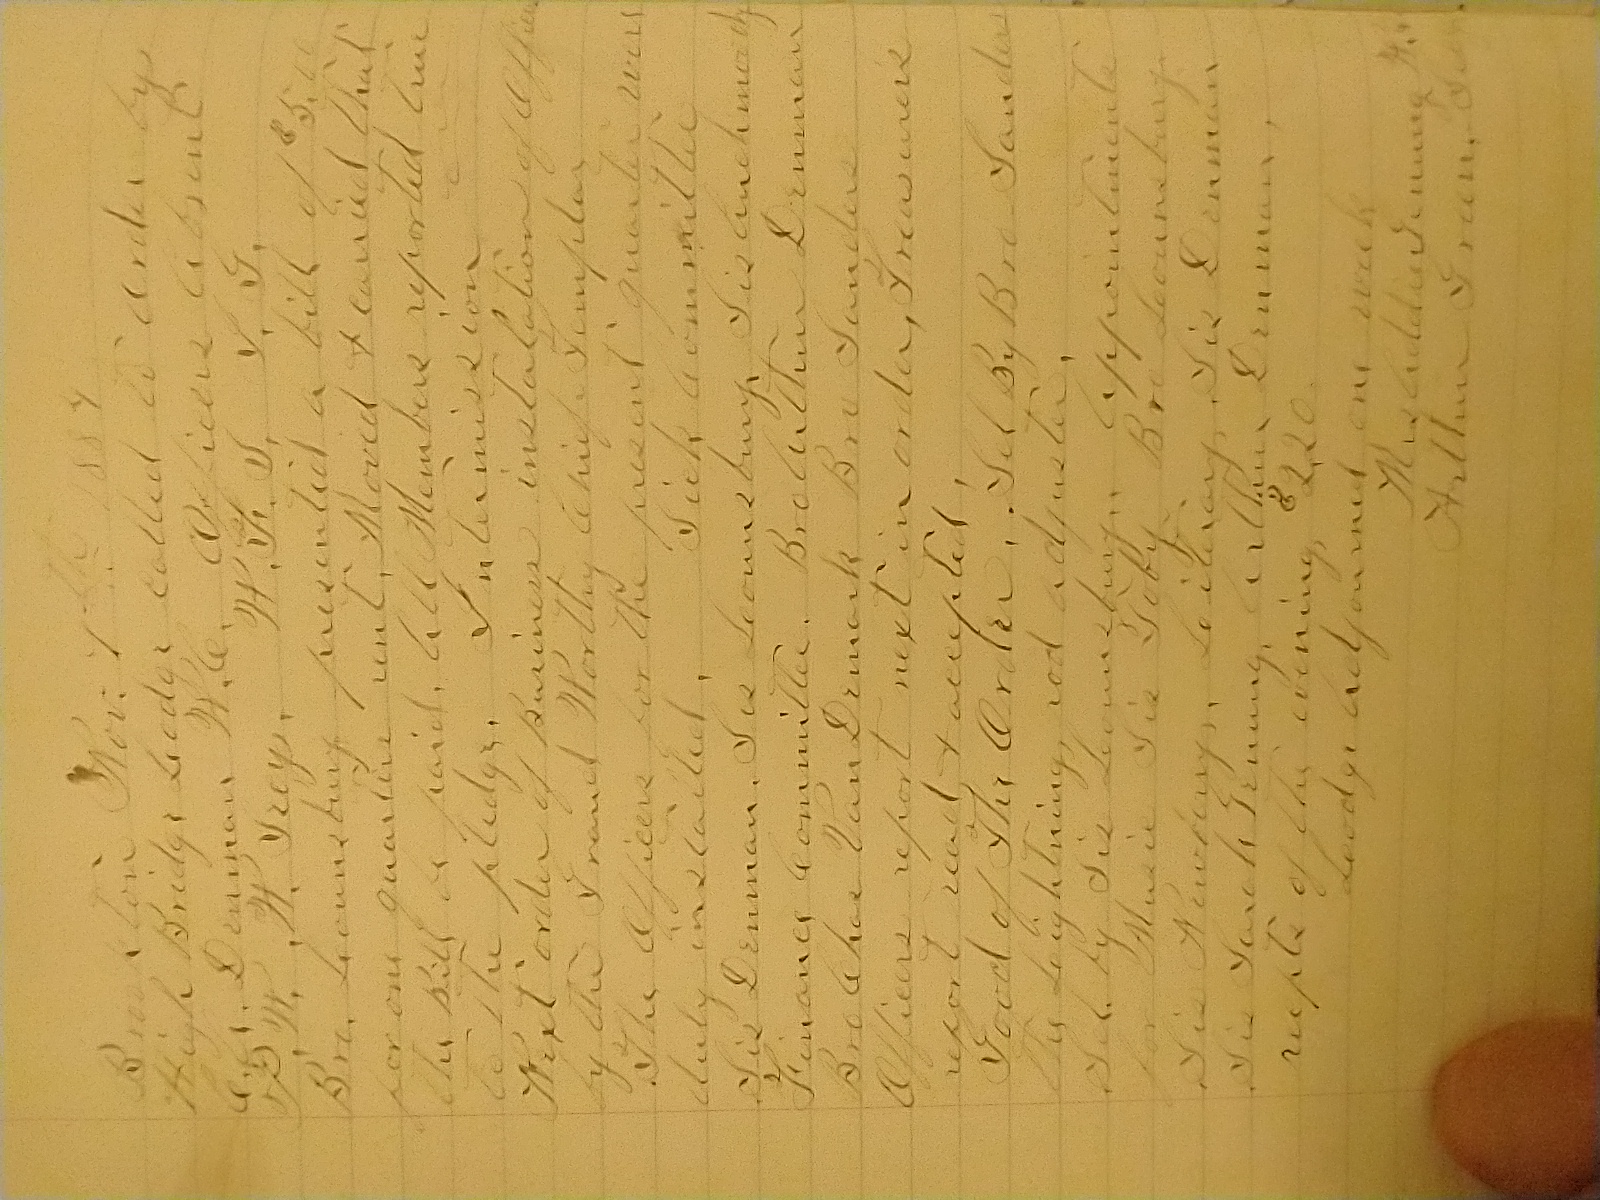 Brookton Nov. 7th 1884
High Bridge Lodge called to order by
C.A. Denman W.C. Officers Absent
P. W. W. Treys. W. F. S. I. G.
Bro. Lounsbury presented a bill of $5.00
for one quarters rent. Moved & carried that
the Bill be paid. All Members reported true
to the pledge. Intermission
Next order of Business instalation of Officers
by the Grand Worthy Chief Templar
The Officers for the present quarter were
duly installed. Sick Committee
Sis Denman. Sis Lounsbury Sis
Finance Committee. Bro Arthur Denman
Bro Chas VanDemark Bro Sanders
Officers report next in order, Treasurers
report read & accepted.
Good of The Order. Sel By Bro Sanders
the Leightning rod adjuster.
Sel. by Sis Lounsbury. Appointments
for Music Sis Toby Bro Lounsbury
Sis Newberry, Leiterary Sis Denman
Sis Sarah Genung, Arthur Denman.
recpts of the evening $2.20
Lodge Adjourned one week
Mrs Addie Genung
Arthur Green.